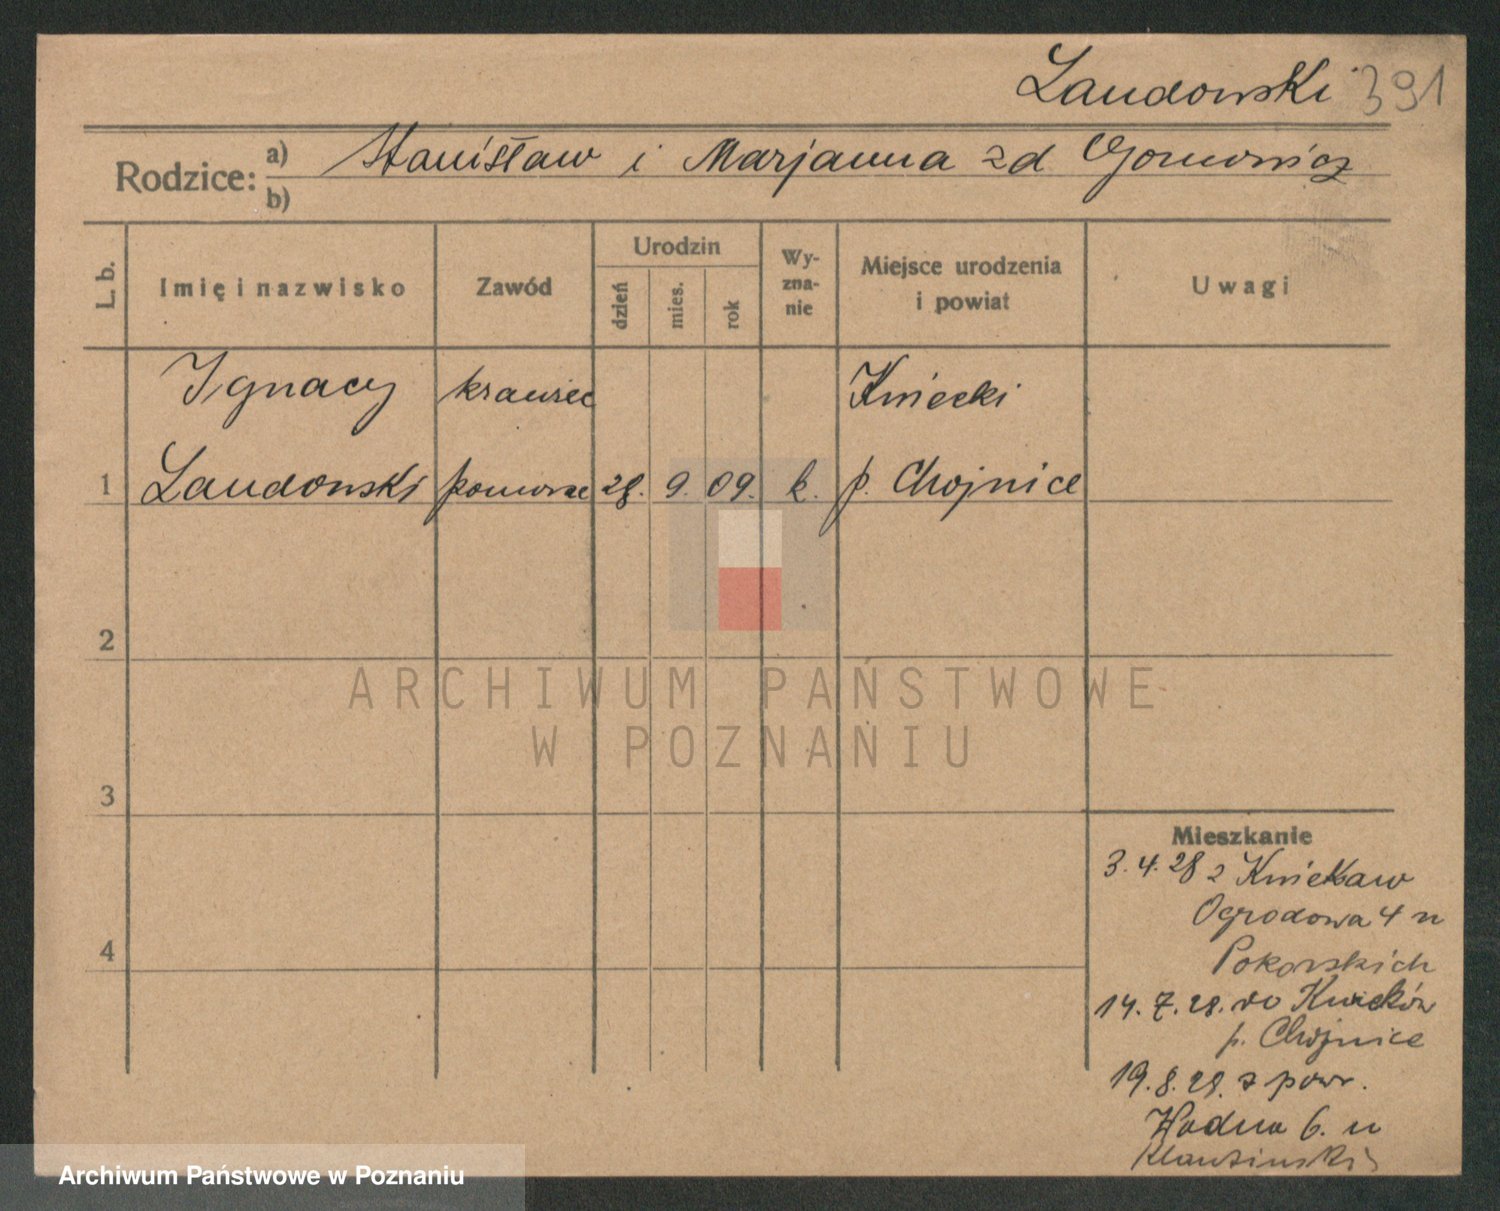 Landowski 391
Rodzice: a) Stanisław i Marjanna zd
b)
L. b. Imię i nazwisko Zawód Urodzin dzień mies. rok Wyznanie Miejsce urodzenia i powiat Uwagi
Ignacy krawiec Kniecki
1 Landowski 28. 9. 09. k. p. Chojnice
2
3
4
Mieszkanie
3.4.28 z
Ogrodowa 4 u
Pokorskich
14.7.28. do
p. Chojnice
19.8.28. z powr.
Wodna 6. u
ARCHIWUM PAŃSTWOWE
W POZNANIU
Archiwum Państwowe w Poznaniu